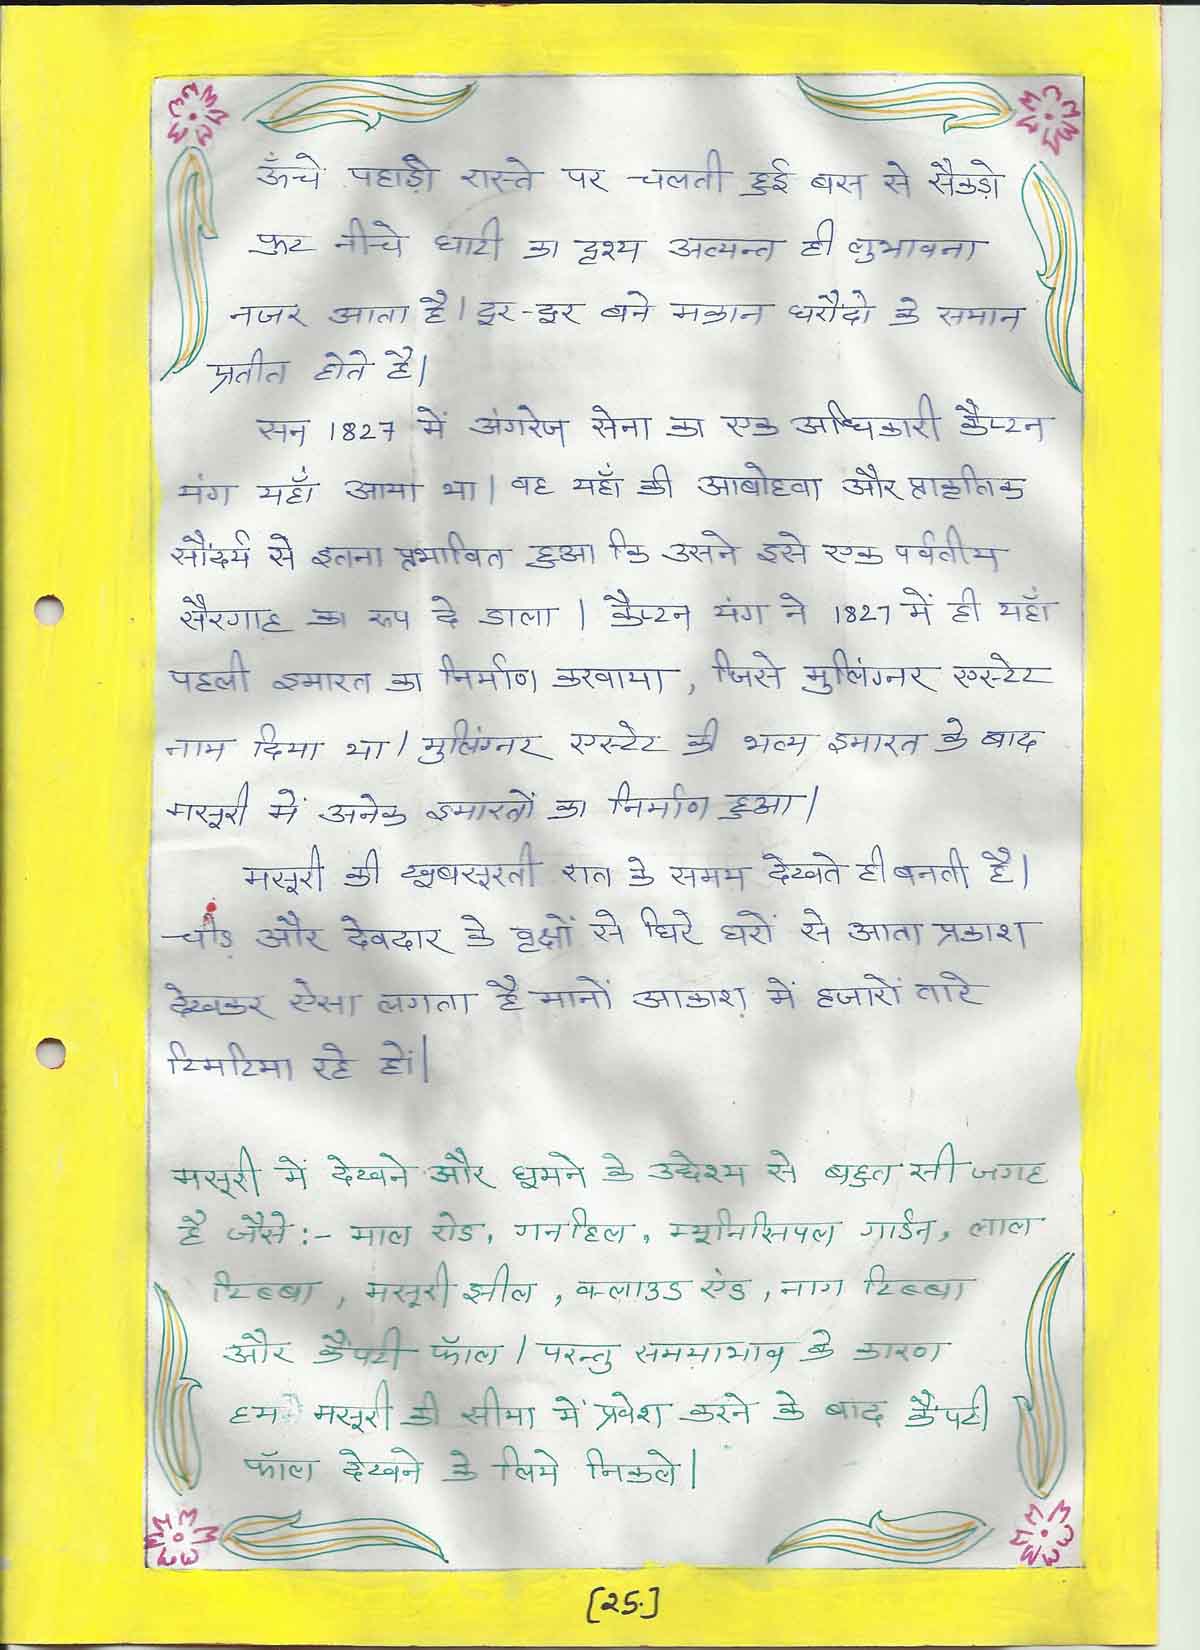 ऊँचे पहाड़ी रास्ते पर चलती हुई बस से सैकड़ो
फुट नीचे घाटी का दृश्य अत्यन्त ही लुभावना
नजर आता है। दूर-दूर बने मकान घरौंदो के समान
प्रतीत होते है।
सन 1827 में अंगरेज सेना का एक अधिकारी कैप्टन
यंग यहाँ आया था। वह यहाँ की आबोहवा और प्राकृतिक
सौंदर्य से इतना प्रभावित हुआ कि उसने इसे एक पर्वतीय
सैरगाह का रूप दे डाला। कैप्टन यंग ने 1827 में ही यहाँ
पहली इमारत का निर्माण करवाया, जिसे मुलिंग्नर एस्टेट
नाम दिया था। मुलिंग्नर एस्टेट की भव्य इमारत के बाद
मसूरी में अनेक इमारतों का निर्माण हुआ।
मसूरी की खूबसूरती रात के समय देखते ही बनती है।
चीड और देवदार के वृक्षों से घिरे घरों से आता प्रकाश
देखकर ऐसा लगता है मानों आकाश में हजारों तारे
टिमटिमा रहे हों।
मसूरी में देखने और घूमने के उद्देश्य से बहुत सी जगह
है जैसे:- माल रोड, गनहिल, म्यूनिसिपल गार्डन, लाल
टिब्बा, मसूरी झील, क्लाउड एंड, नाग टिब्बा
और कैंपटी फॉल। परन्तु समयाभाव के कारण
हम मसूरी की सीमा में प्रवेश करने के बाद कैंपटी
फॉल देखने के लिये निकले।
[25.]